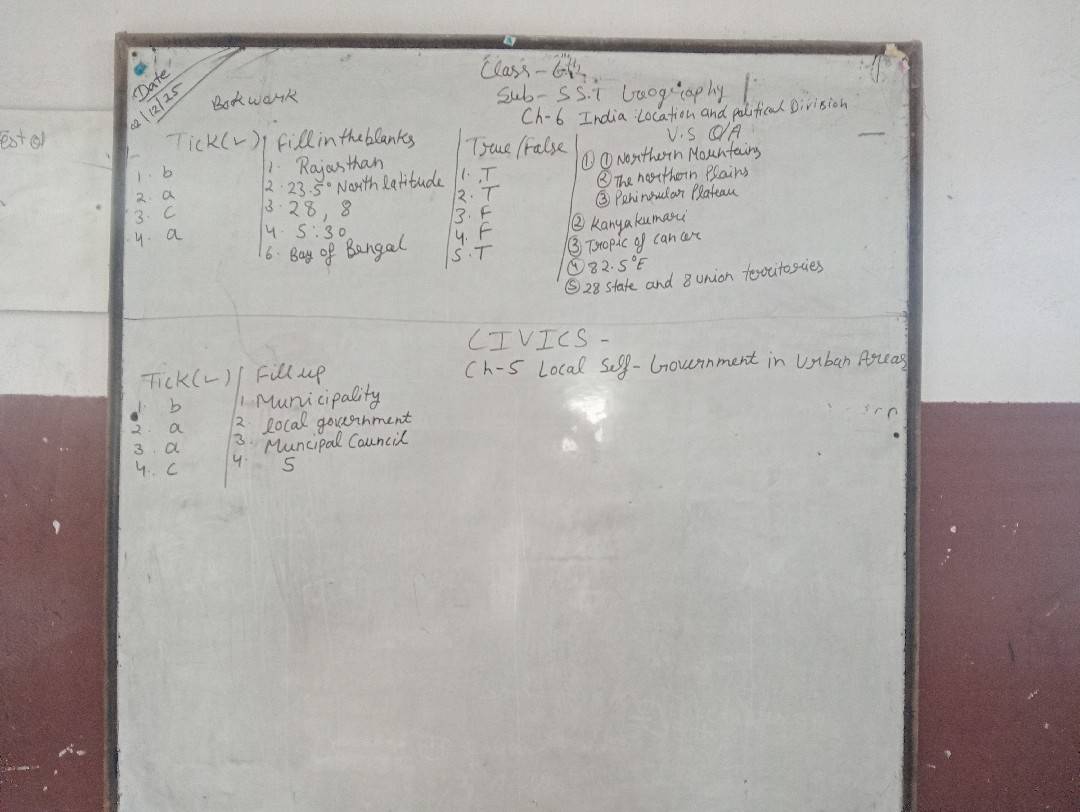 Date
02/12/25
Class - 6th
Bookwork
Sub - S S.T Geography
Ch-6 India : Location and political Division
Tick(✓)
1. b
2. a
3. c
4. a
Fill in the blanks
1. Rajasthan
2. 23.5° North latitude
3. 28, 8
4. 5:30
6. Bay of Bengal
True/False
1. T
2. T
3. F
4. F
5. T
V.S Q/A
① ① Northern Mountains
② The northern Plains
③ Peninsular Plateau
② Kanyakumari
③ Tropic of cancer
④ 82.5°E
⑤ 28 state and 8 union territories
CIVICS -
Ch-5 Local Self-Government in Urban Areas
Tick(✓)
1. b
2. a
3. a
4. c
Fill up
1. Municipality
2. local government
3. Muncipal Council
4. 5